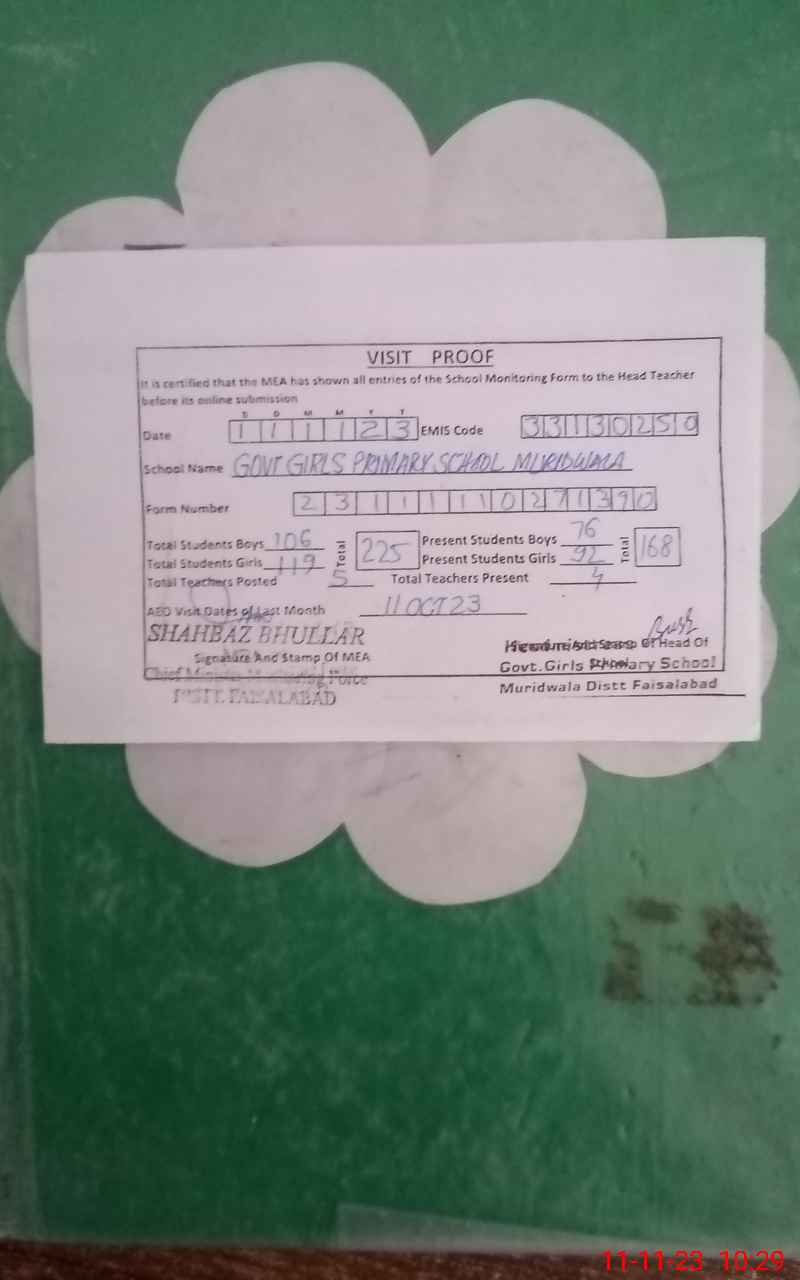 VISIT PROOF
It is certified that the MEA has shown all entries of the School Monitoring Form to the Head Teacher
before its online submission
D D M M Y Y
Date 1 1 1 1 2 3 EMIS Code 3 3 1 3 0 2 5 0
School Name GOVT GIRLS PRIMARY SCHOOL MURIDWALA
Form Number 2 3 1 1 1 1 1 0 2 7 1 3 9 0
Total Students Boys 106 Total 225 Present Students Boys 76 Total 168
Total Students Girls 119 Present Students Girls 92
Total Teachers Posted 5 Total Teachers Present 4
AEO Visit Dates of Last Month 11 OCT 23
SHAHBAZ BHULLAR
Signature And Stamp Of MEA
Chief Minister Monitoring Force
DISTT. FAISALABAD
Headmistress
Signature And Stamp Of Head Of
School
Govt.Girls Primary School
Muridwala Distt Faisalabad
11-11-23 10:29